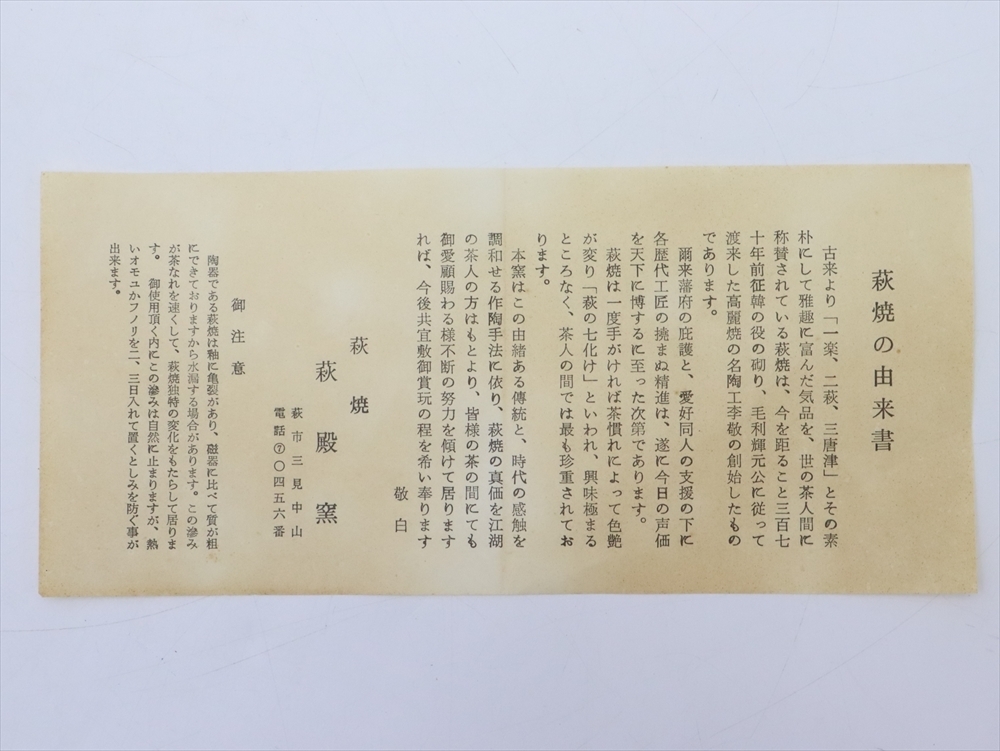 萩焼の由来書
古来より「一楽、二萩、三唐津」とその素
朴にして雅趣に富んだ気品を、世の茶人間に
称賛されている萩焼は、今を距ること三百七
十年前征韓の役の砌り、毛利輝元公に従って
渡来した高麗焼の名陶工李敬の創始したもの
であります。
爾来藩府の庇護と、愛好同人の支援の下に
各歴代工匠の撓まぬ精進は、遂に今日の声価
を天下に博するに至った次第であります。
萩焼は一度手がければ茶慣れによって色艶
が変り「萩の七化け」といわれ、興味極まる
ところなく、茶人の間では最も珍重されてお
ります。
本窯はこの由緒ある傳統と、時代の感触を
調和せる作陶手法に依り、萩焼の真価を江湖
の茶人の方はもとより、皆様の茶の間にても
御愛顧賜わる様不断の努力を傾けて居ります
れば、今後共宜敷御賞玩の程を希い奉ります
敬白
萩焼
萩殿窯
萩市三見中山
電話⑦〇四五六番
御注意
陶器である萩焼は釉に亀裂があり、磁器に比べて質が粗
にできておりますから水漏する場合があります。この滲み
が茶なれを速くして、萩焼独特の変化をもたらして居りま
す。 御使用頂く内にこの滲みは自然に止まりますが、熱
いオモユかフノリを二、三日入れて置くとしみを防ぐ事が
出来ます。